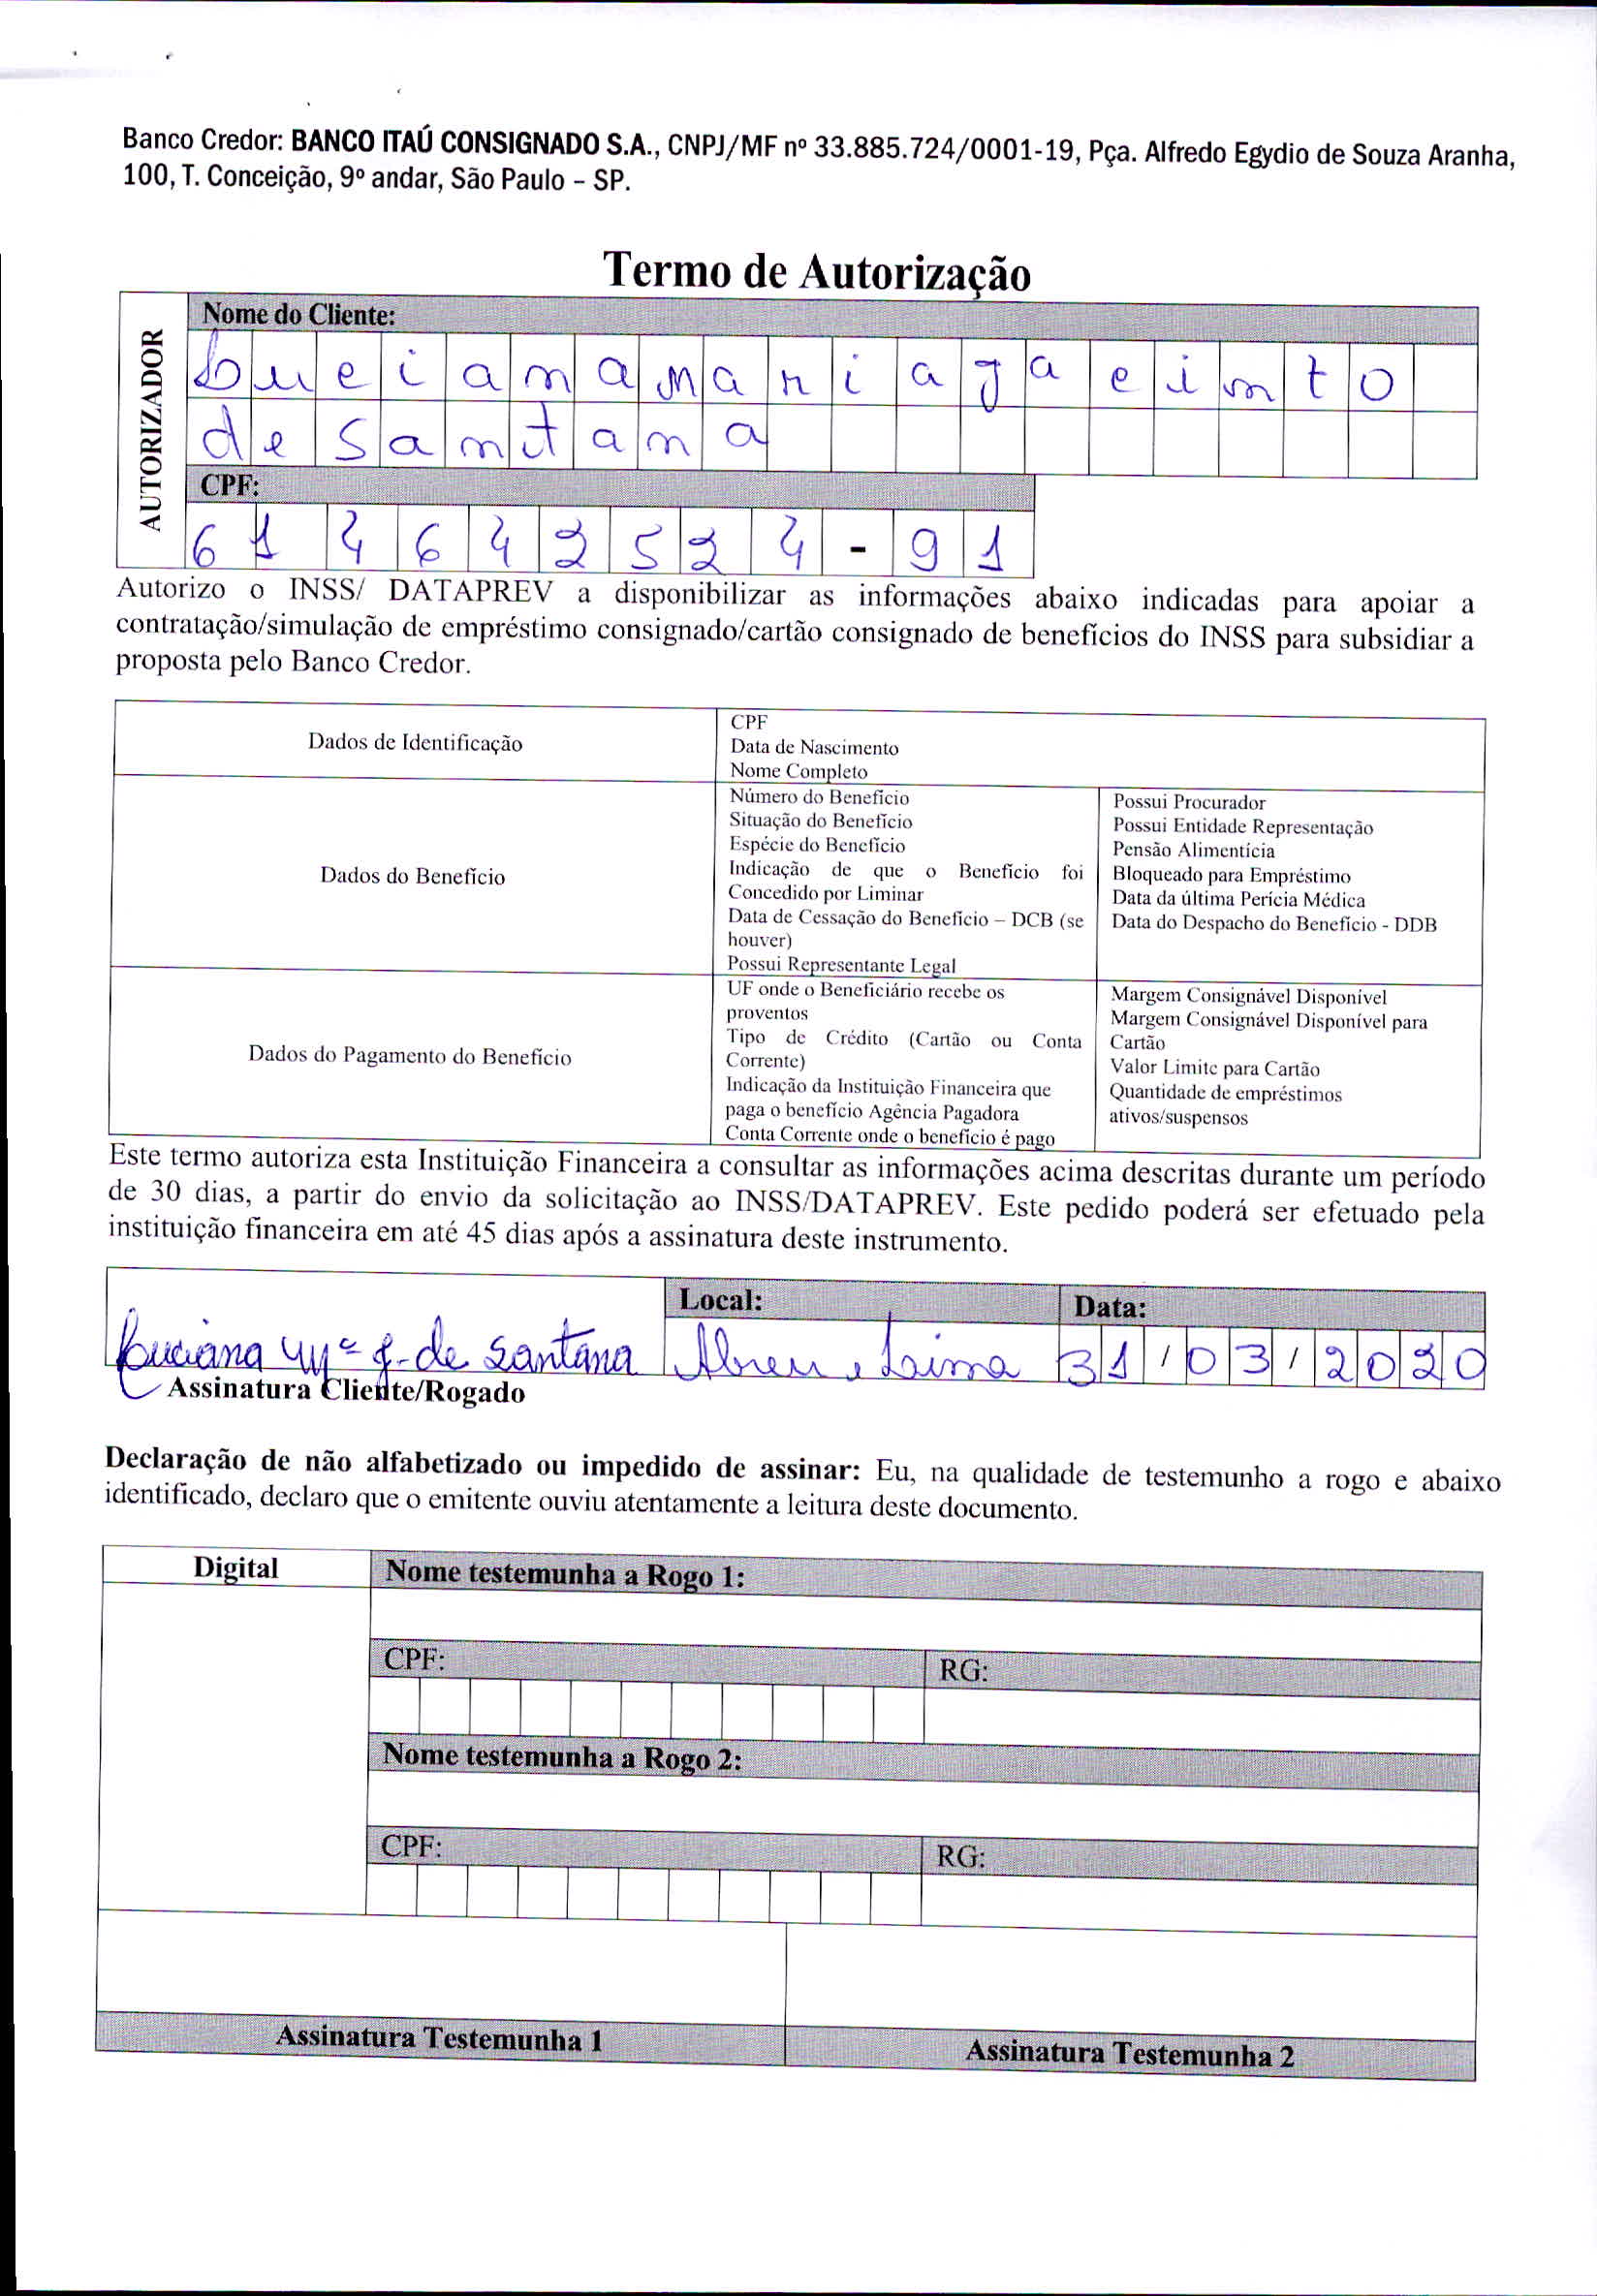 Banco Credor: BANCO ITAÚ CONSIGNADO S.A., CNPJ/MF nº 33.885.724/0001-19, Pça. Alfredo Egydio de Souza Aranha,
100, T. Conceição, 9º andar, São Paulo – SP.
Termo de Autorização
AUTORIZADOR
Nome do Cliente:
Luciana Maria Jacinto
de Santana
CPF:
614642524-91
Autorizo o INSS/ DATAPREV a disponibilizar as informações abaixo indicadas para apoiar a
contratação/simulação de empréstimo consignado/cartão consignado de benefícios do INSS para subsidiar a
proposta pelo Banco Credor.
Dados de Identificação
CPF
Data de Nascimento
Nome Completo
Dados do Benefício
Número do Benefício
Situação do Benefício
Espécie do Benefício
Indicação de que o Benefício foi
Concedido por Liminar
Data de Cessação do Benefício – DCB (se
houver)
Possui Representante Legal
Possui Procurador
Possui Entidade Representação
Pensão Alimentícia
Bloqueado para Empréstimo
Data da última Perícia Médica
Data do Despacho do Benefício - DDB
Dados do Pagamento do Benefício
UF onde o Beneficiário recebe os
proventos
Tipo de Crédito (Cartão ou Conta
Corrente)
Indicação da Instituição Financeira que
paga o benefício Agência Pagadora
Conta Corrente onde o benefício é pago
Margem Consignável Disponível
Margem Consignável Disponível para
Cartão
Valor Limite para Cartão
Quantidade de empréstimos
ativos/suspensos
Este termo autoriza esta Instituição Financeira a consultar as informações acima descritas durante um período
de 30 dias, a partir do envio da solicitação ao INSS/DATAPREV. Este pedido poderá ser efetuado pela
instituição financeira em até 45 dias após a assinatura deste instrumento.
Local:
Data:
Luciana Mª J. de Santana
Abreu e Lima
31/03/2020
Assinatura Cliente/Rogado
Declaração de não alfabetizado ou impedido de assinar: Eu, na qualidade de testemunho a rogo e abaixo
identificado, declaro que o emitente ouviu atentamente a leitura deste documento.
Digital
Nome testemunha a Rogo 1:
CPF:
RG:
Nome testemunha a Rogo 2:
CPF:
RG:
Assinatura Testemunha 1
Assinatura Testemunha 2